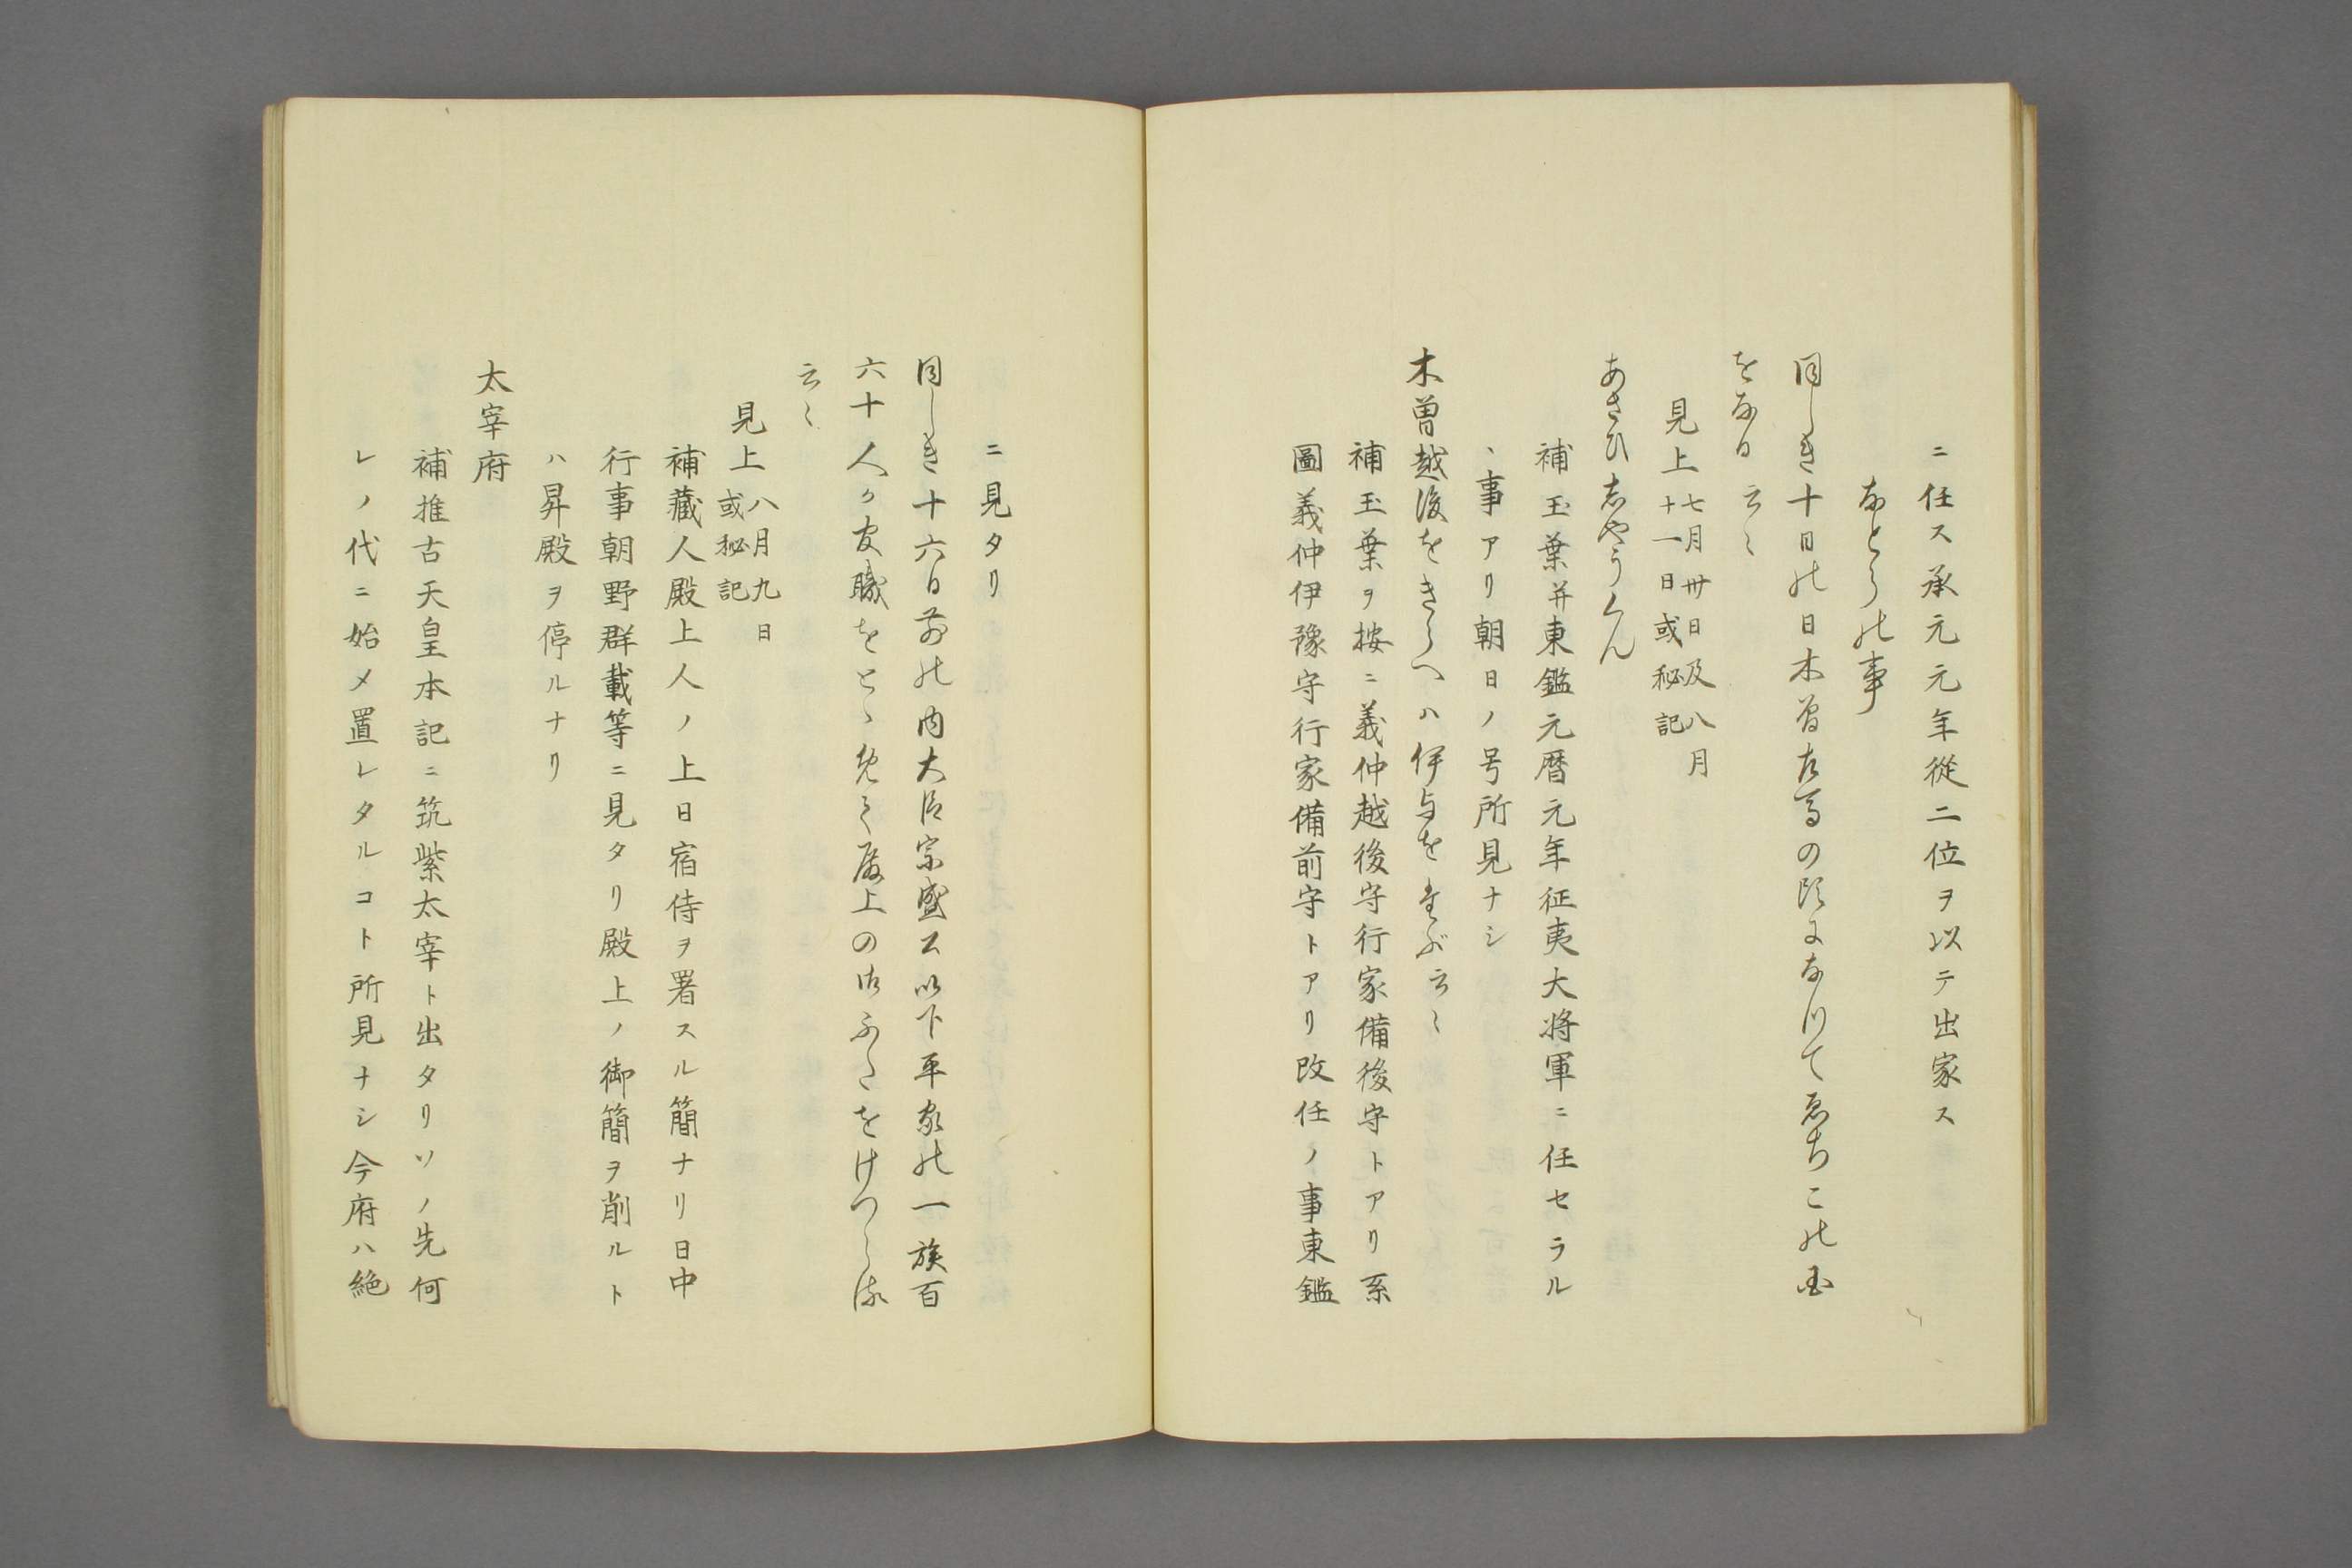 ニ任ス承元元年從二位ヲ以テ出家ス
なとらの事
同しき十日の日木曽左馬の頭になりてゑちこの国
を給る云〻
見上七月卅日及八月
十一日或秘記
あさひしやうくん
補玉葉并東鑑元暦元年征夷大将軍ニ任セラル
ヽ事アリ朝日ノ号所見ナシ
木曽越後をきらへハ伊与をたぶ云〻
補玉葉ヲ按ニ義仲越後守行家備後守トアリ系
圖義仲伊豫守行家備前守トアリ改任ノ事東鑑
ニ見タリ
同しき十六日前の内大臣宗盛公以下平家の一族百
六十人か官職をとゝめて殿上の御ふたをけつらる
云〻
見上八月九日
或秘記
補藏人殿上人ノ上日宿侍ヲ署スル簡ナリ日中
行事朝野群載等ニ見タリ殿上ノ御簡ヲ削ルト
ハ昇殿ヲ停ルナリ
太宰府
補推古天皇本記ニ筑紫太宰ト出タリソノ先何
レノ代ニ始メ置レタルコト所見ナシ今府ハ絶